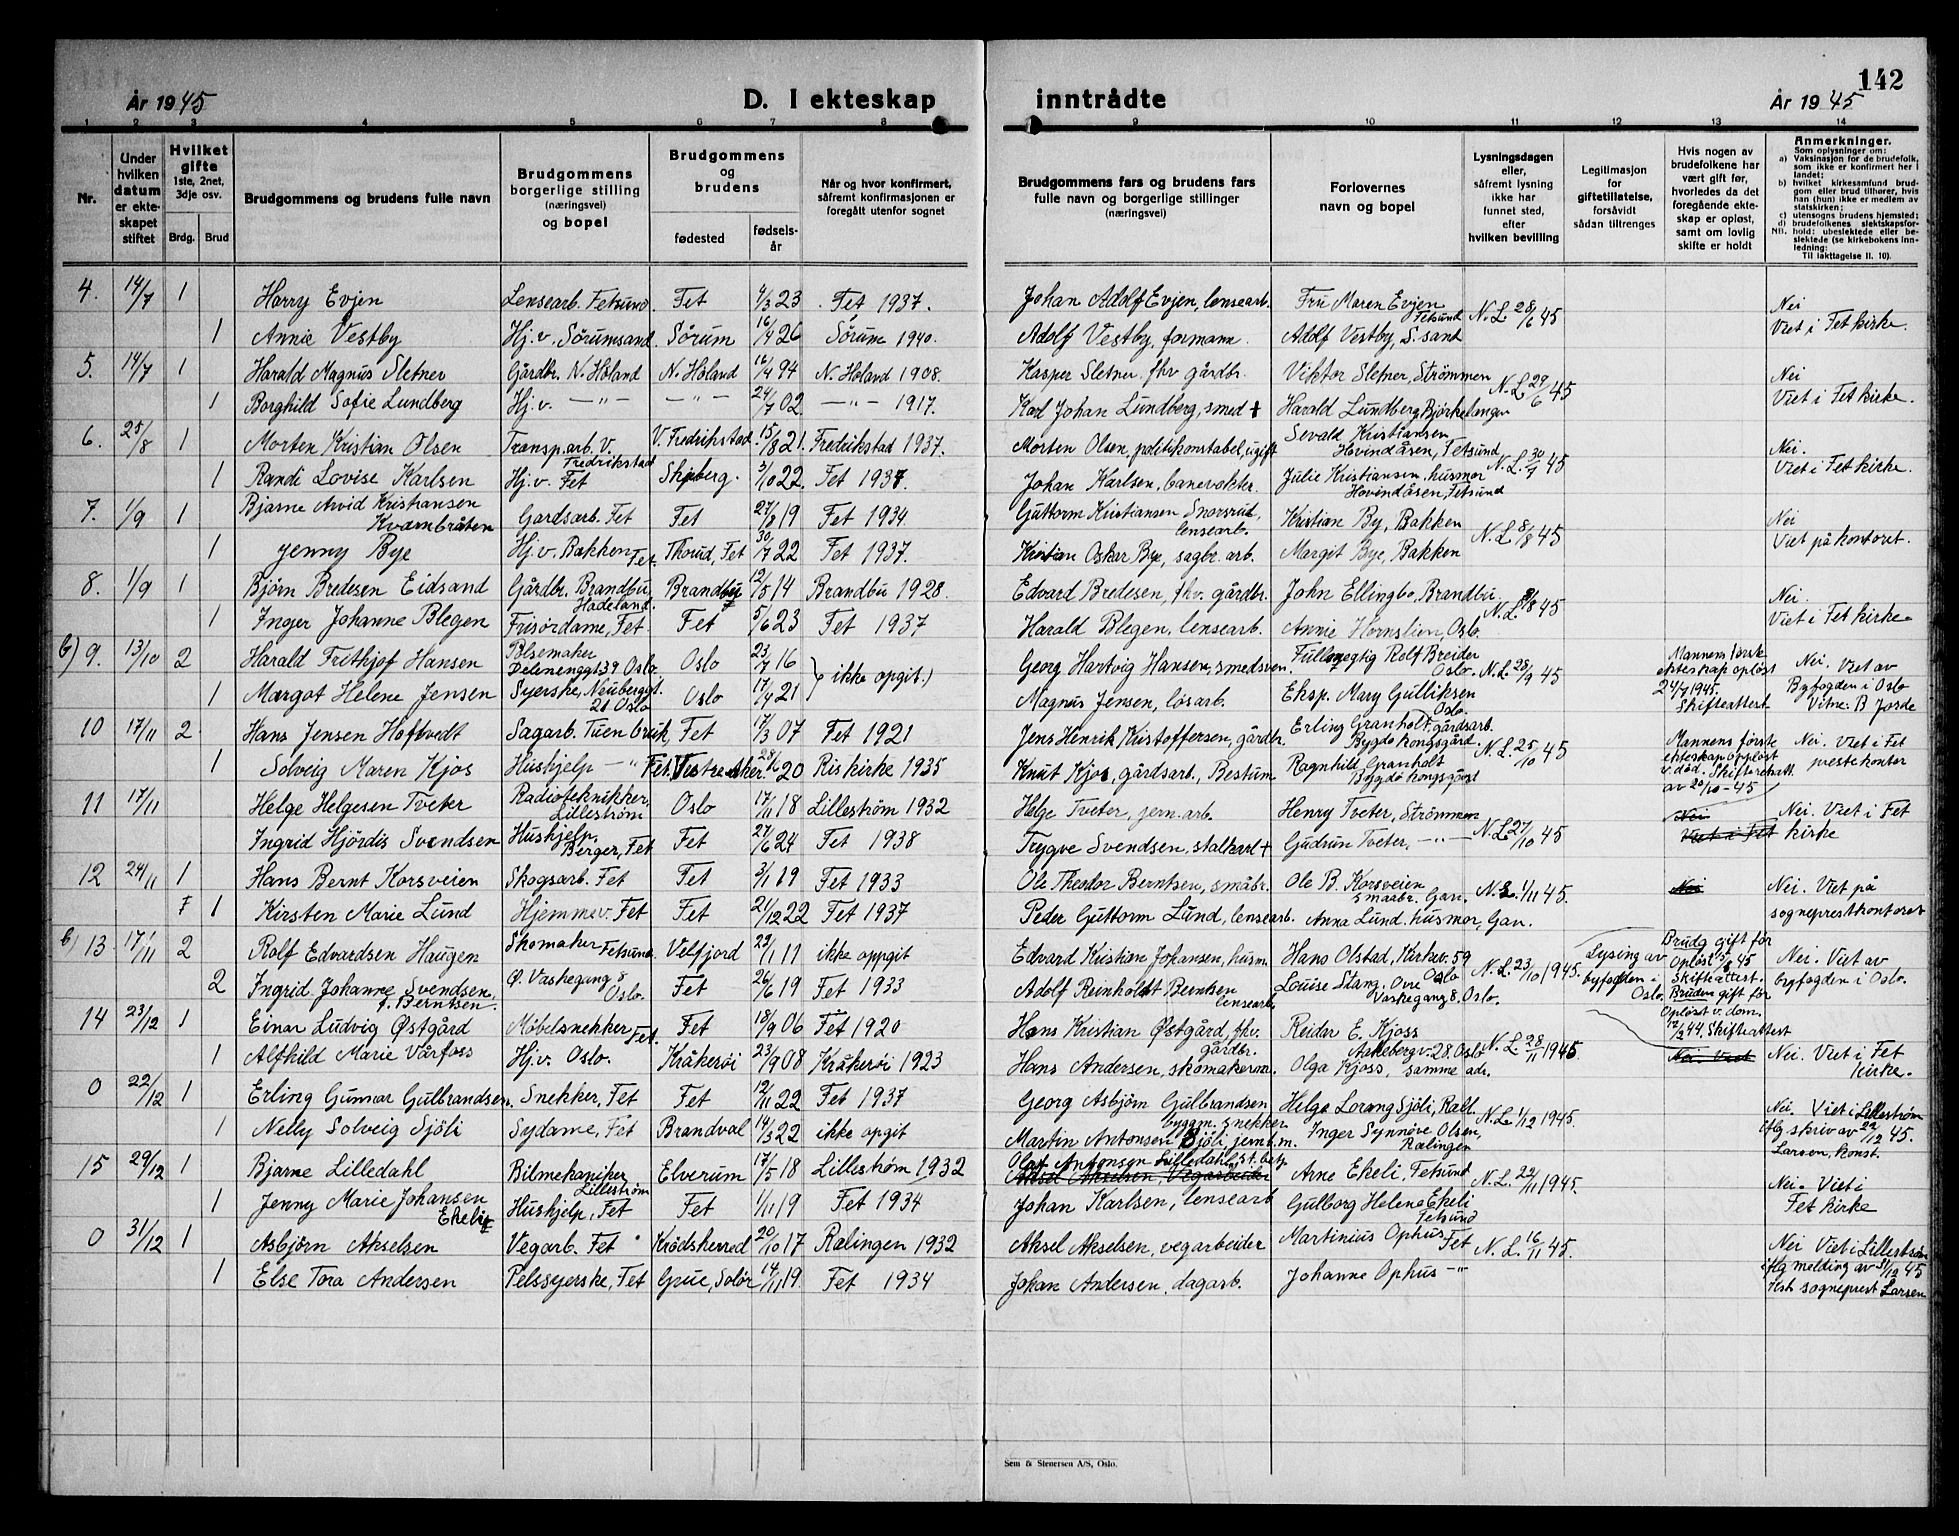 142
År 1945
D. I ekteskap
inntrådte
År 1945
1 2 3 4 5 6 7 8 9 10 11 12 13 14
Nr.
Under hvilken datum er ekteskapet stiftet
Hvilket gifte 1ste, 2net, 3dje osv.
Brdg. Brud
Brudgommens og brudens fulle navn
Brudgommens borgerlige stilling (næringsvei) og bopel
Brudgommens og brudens
fødested
fødselsår
Når og hvor konfirmert, såfremt konfirmasjonen er foregått utenfor sognet
Brudgommens fars og brudens fars fulle navn og borgerlige stillinger (næringsvei)
Forlovernes navn og bopel
Lysningsdagen eller, såfremt lysning ikke har funnet sted, efter hvilken bevilling
Legitimasjon for giftetillatelse, forsåvidt sådan tiltrenges
Hvis nogen av brudefolkene har vært gift før, hvorledes da det foregående ekteskap er opløst, samt om lovlig skifte er holdt
Anmerkninger.
Som oplysninger om:
a) Vaksinasjon for de brudefolk, som ikke er konfirmert her i landet;
b) hvilket kirkesamfund brudgom eller brud tilhører, hvis han (hun) ikke er medlem av statskirken;
c) utensogns brudens hjemsted;
d) brudefolkenes slektskapsforhold: ubeslektede eller beslektede (se kirkebokens innledning:
NB.
Til iakttagelse II. 10).
4. 14/7 1 Harry Evjen Lensearb. Fetsund. Fet 4/3 23 Fet 1937. Johan Adolf Evjen, lensearb. Fru Maren Evjen Fetsund N.L. 28/6 45 Nei
1 Annie Vestby Hj.v. Sörumsand Sörum 16/4 26 Sörum 1940. Adolf Vestby, formann. Adolf Vestby, S.sand Viet i Fet kirke.
5. 14/7 1 Harald Magnus Sletner Gårdbr. N. Höland N. Höland 16/4 94 N. Höland 1908. Kasper Sletner fhv gårdbr. Viktor Sletner, Strömmen N.L. 29/6 45 Nei
1 Borghild Sofie Lundberg Hj.v. —"— —"— 24/7 02. —"— 1917. Karl Johan Lundberg, smed + Harald Lundberg, Bjørkelangen Viet i Fet kirke.
6. 25/8 1 Morten Kristian Olsen Transp.arb. V. Fredrikstad V. Fredrikstad 15/8 21. Fredrikstad 1937. Morten Olsen, politikonstabel, ugift Sevald Kristiansen Hovindåsen, Fetsund N.L. 30/7 45 Nei.
1 Randi Lovise Karlsen Hj.v. Fet Skjeberg. 3/10 22. Fet 1937. Johan Karlsen, banevokter. Julie Kristiansen, husmor Hovindåsen, Fetsund Viet i Fet kirke.
7. 1/9 1 Bjarne Arvid Kristiansen Kvarnbråten Gardsarb. Fet Fet 27/8 19 Fet 1934. Guttorm Kristiansen Snorsrud, lensearb. Kristian By, Bakken N.L. 8/8 45 Nei
1 Jenny Bye Hj.v. Bakken Fet. Thorud, Fet 30/7 22 Fet 1937. Kristian Oskar Bye, sagbr. arb. Margit Bye, Bakken Viet på kontoret.
8. 1/9 1 Bjørn Bredesen Eidsand Gårdbr. Brandbu, Hadeland. Brandbu 12/5 14 Brandbu 1928. Edvard Bredesen, fhv. gårdbr. John Ellingbo, Brandbu. N.L. 8/8 45 Nei.
1 Inger Johanne Blegen Frisördame, Fet. Fet 5/6 23 Fet 1937 Harald Blegen, lensearb. Annie Hornslien, Oslo. Viet i Fet kirke.
b) 9. 13/10 2 Harald Frithjof Hansen Pølsemaker Delenenggt 39 Oslo. Oslo 23/7 16 } ikke opgit.) Georg Hartvig Hansen, smedsven Fullmegtig Rolf Breider Oslo. N.L. 28/9 45 Mannens förste ekteskap oplöst 24/7 1945. Skifteattest. Nei. Viet av Byfogden i Oslo Vitne: B Jorde
1 Margot Helene Jensen Syerske, Neuberggt. 21 Oslo Oslo 17/4 21 Magnus Jensen, løsarb. Eksp. Mary Gulliksen Oslo.
10 17/11 2. Hans Jensen Hoftvedt Sagarb. Tuen bruk, Fet 17/3 07 Fet 1921 Jens Henrik Kristoffersen, gårdbr. Erling Granholt, gårdsarb. Bygdø kongsgård N.L. 25/10 45 Mannens förste ekteskap oplöst v. död. Skifteattest av 20/10-45 Nei. Viet i Fet prestekontor
1 Solveig Maren Kjos Hushjelp —"— Fet. Vestre Aker 28/6 20 Ris kirke 1935 Knut Kjos, gårdsarb., Bestum Ragnhild Granholt Bygdø kongsgård
11 17/11 Helge Helgesen Tveter Radiotekniker, Lilleström Oslo 17/11 18 Lillestrøm 1932 Helge Tveter, jern.arb. Henry Tveter, Strömmen N.L 27/10 45 Nei Viet i Fet Nei. Viet i Fet kirke
Ingrid Hjördis Svendsen Hushjelp, Berger, Fet Fet 27/6 24 Fet 1938 Trygve Svendsen, stalkarl + Gudrun Tveter, —"—
12 24/11 1 Hans Bernt Korsveien Skogsarb. Fet Fet 3/11 19 Fet 1933 Ole Theodor Berntsen, småbr. Ole B. Korsveien småbr. Gan. N.L. 1/11 45. Nei Nei. Viet på sogneprestkontoret
F 1 Kirsten Marie Lund Hjemmev. Fet Fet 21/12 22 Fet 1937 Peder Guttorm Lund, lensearb. Anna Lund. husmor, Gan.
b) 13 17/11 2 Rolf Edvardsen Haugen Skomaker Fetsund Velfjord 23/1 11 ikke oppgit Edvard Kristian Johansen, husm. Hans Olstad, Kirkev. 59 Oslo N.L. 23/10 1945. Lysing av byfogden i Oslo. Brudg gift før Opløst 5/8 45 Skifteattest. Nei. Viet av byfogden i Oslo.
2 Ingrid Johanne Svendsen f. Berntsen Ø. Vaskegang 8 Oslo. Fet 26/6 19 Fet 1933 Adolf Reinholdt Berntsen lensearb. Louise Stang, Øvre Vaskegang 8, Oslo. Bruden gift før Opløst v. dom. 12/2 44. Skifteattest
14 23/12 1 Einar Ludvig Østgård Møbelsnekker Fet. Fet 18/9 06 Fet 1920 Hans Kristian Østgård, fhv. gårdbr. Reidar E. Kjoss Askebergv. 28. Oslo N.L. 28/11 1945
1 Alfhild Marie Vårfoss Hj.v. Oslo. Kråkerøi 23/9 08 Kråkerøi 1923 Hans Andersen, skomakerm. Olga Kjoss, samme adr. Nei. Viet Nei. Viet i Fet kirke.
0 22/12 1 Erling Gunnar Gulbrandsen. Snekker, Fet Fet 12/11 22 Fet 1937 Georg Asbjørn Gulbrandsen byggm. snekker Helge Lorang Sjöli, Ræl. N.L. 1/12 1945. Nei. Viet i Lillestrøm iflg skriv av 22/12 45. Larsen, konst.
1 Nelly Solveig Sjöli Sydame, Fet Brandval 14/3 22 ikke opgit Martin Antonsen Sjöli, jernb.m. Inger Synnöve Olsen, Rælingen
15 29/12 1 Bjarne Lilledahl Bilmekaniker Lillestrøm Elverum 17/5 18 Lillestrøm 1932 Olaf Antonsen Lilledahl, st.betj. Aksel Akselsen, Vegarbeider Arne Ekeli, Fetsund N.L. 22/11 1945. Nei. Viet i Fet kirke
1 Jenny Marie Johansen Ekeli Hushjelp, Fet Fet 1/11 19 Fet 1934 Johan Karlsen, lensearb Gulborg Helene Ekeli Fetsund
0 31/12 1 Asbjörn Akselsen Vegarb. Fet Krødsherred 20/10 17 Rælingen 1932 Aksel Akselsen, vegarbeider Martinius Ophus Fet N.L. 16/11 45. Nei Viet i Lillestrøm iflg melding av 31/12 45 Kst sogneprest Larsen
1 Else Tora Andersen Pelssyerske, Fet Grue, Solør 14/11 19. Fet 1934 Johan Andersen, dagarb. Johanne Ophus —"—
Sem & Stenersen A/S, Oslo.